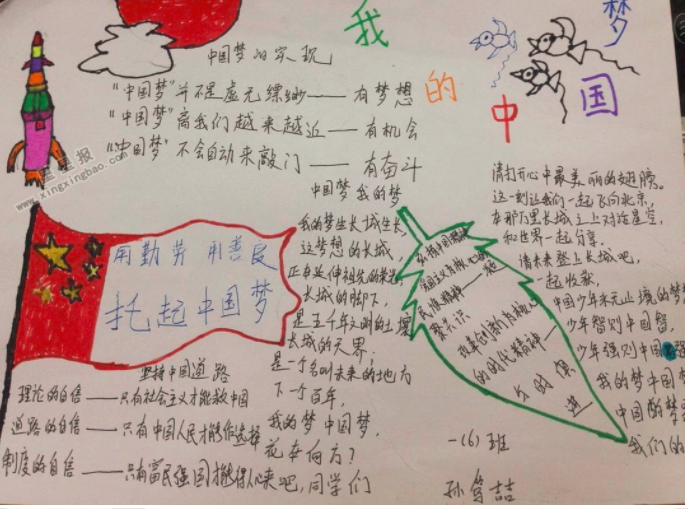 我的中国梦
中国梦的实现
“中国梦”并不是虚无缥缈——有梦想
“中国梦”离我们越来越近——有机会
“中国梦”不会自动来敲门——有奋斗
星星报
www.xingxingbao.com
用勤劳 用善良
托起中国梦
坚持中国道路
理论的自信——只有社会主义才能救中国
道路的自信——只有中国人民才能你选择
制度的自信——只有富民强国才能得人心
中国梦 我的梦
我的梦生长城生长
这梦想的长城，
正在延伸祖先的
长城的脚下，
是五千年文明的土壤
长城的天界，
是一个名叫未来的地方
下一个百年，
我的梦中国梦，
花在向方？
来吧，同学们
民族精神——
聚共识
改革创新为核心
的时代精神——
与时俱
进
请打开心中最美丽的翅膀。
这一刻让我们一起飞向北京，
在那万里长城之上对话星空，
和世界一起分享。
请未来登上长城吧，
一起收获，
中国少年永无止境的梦
少年智则中国智，
少年强则中国强
我的梦中国梦
中国的梦
我们的
一(6)班
孙笃喆